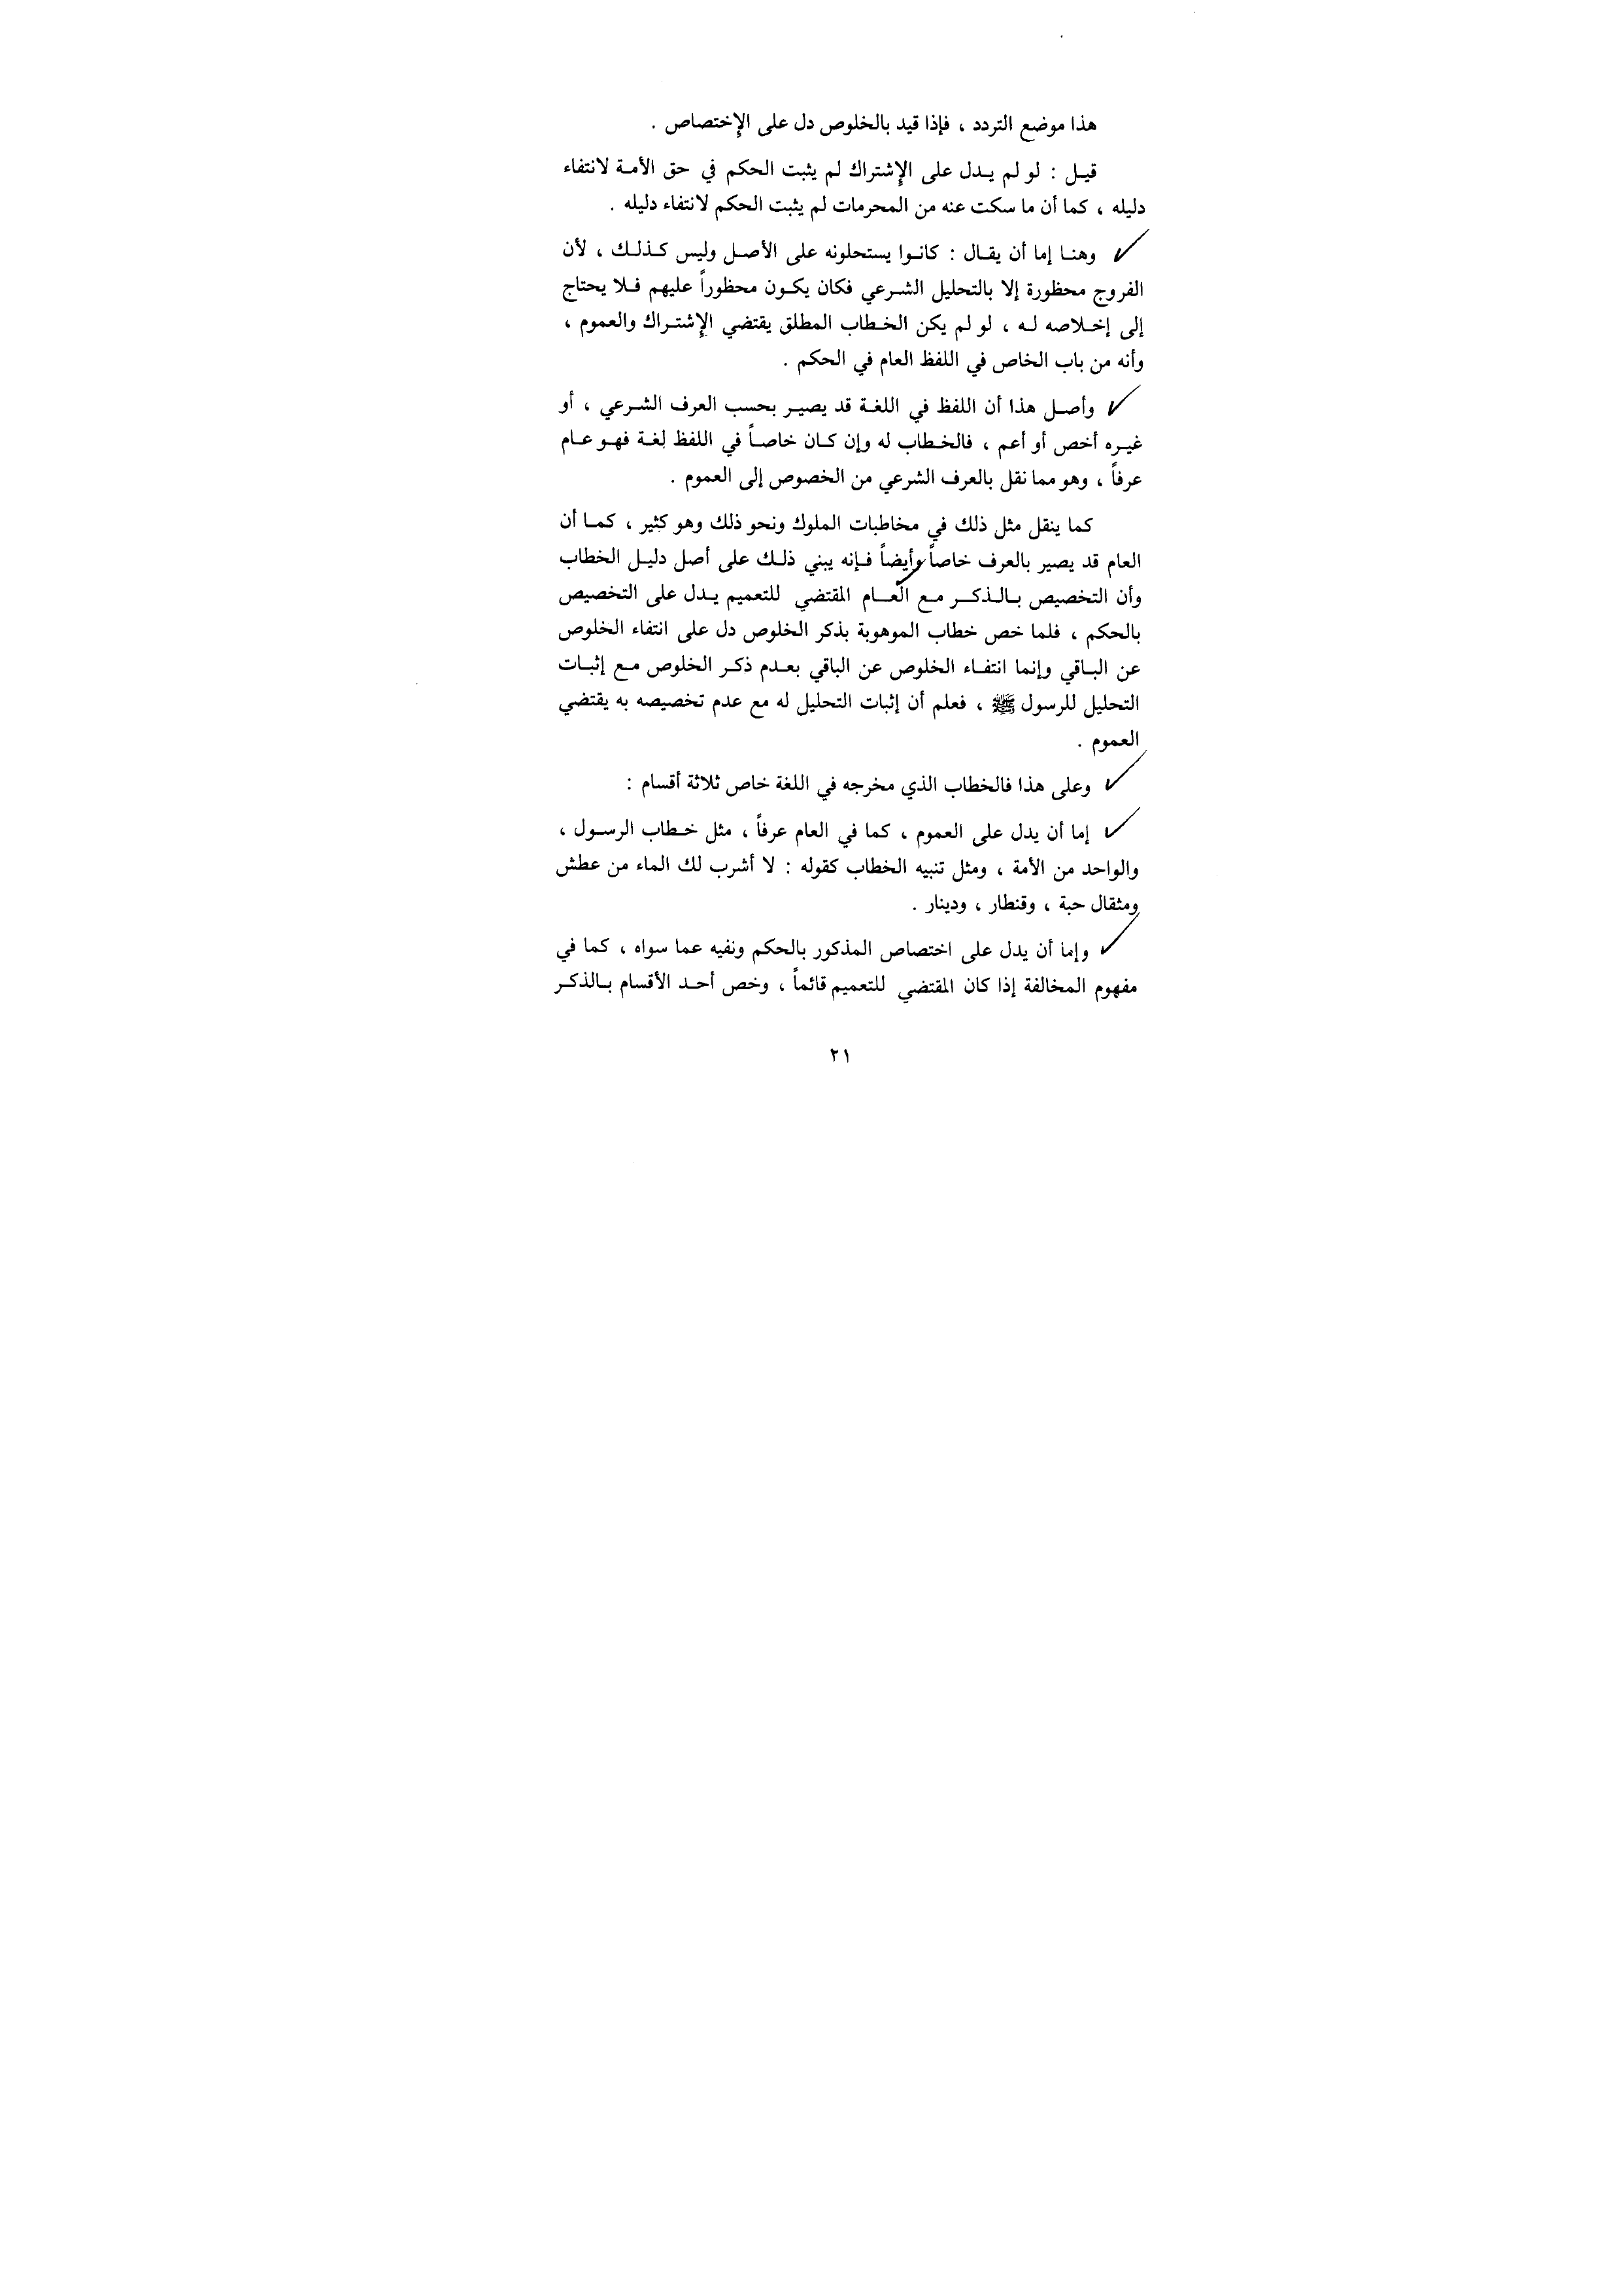 هذا موضع التردد ، فإذا قيد بالخلوص دل على الإختصاص .
قيل : لو لم يدل على الإشتراك لم يثبت الحكم في حق الأمة لانتفاء
دليله ، كما أن ما سكت عنه من المحرمات لم يثبت الحكم لانتفاء دليله .
وهنا إما أن يقال : كانوا يستحلونه على الأصل وليس كذلك ، لأن
الفروج محظورة إلا بالتحليل الشرعي فكان يكون محظوراً عليهم فلا يحتاج
إلى إخلاصه له ، لو لم يكن الخطاب المطلق يقتضي الإشتراك والعموم ،
وأنه من باب الخاص في اللفظ العام في الحكم .
وأصل هذا أن اللفظ في اللغة قد يصير بحسب العرف الشرعي ، أو
غيره أخص أو أعم ، فالخطاب له وإن كان خاصاً في اللفظ لغة فهو عام
عرفاً ، وهو مما نقل بالعرف الشرعي من الخصوص إلى العموم .
كما ينقل مثل ذلك في مخاطبات الملوك ونحو ذلك وهو كثير ، كما أن
العام قد يصير بالعرف خاصاً وأيضاً فإنه يبني ذلك على أصل دليل الخطاب
وأن التخصيص بالذكر مع العام المقتضي للتعميم يدل على التخصيص
بالحكم ، فلما خص خطاب الموهوبة بذكر الخلوص دل على انتفاء الخلوص
عن الباقي وإنما انتفاء الخلوص عن الباقي بعدم ذكر الخلوص مع إثبات
التحليل للرسول ﷺ ، فعلم أن إثبات التحليل له مع عدم تخصيصه به يقتضي
العموم .
وعلى هذا فالخطاب الذي مخرجه في اللغة خاص ثلاثة أقسام :
إما أن يدل على العموم ، كما في العام عرفاً ، مثل خطاب الرسول ،
والواحد من الأمة ، ومثل تنبيه الخطاب كقوله : لا أشرب لك الماء من عطش
ومثقال حبة ، وقنطار ، ودينار .
وإما أن يدل على اختصاص المذكور بالحكم ونفيه عما سواه ، كما في
مفهوم المخالفة إذا كان المقتضي للتعميم قائماً ، وخص أحد الأقسام بالذكر
٢١